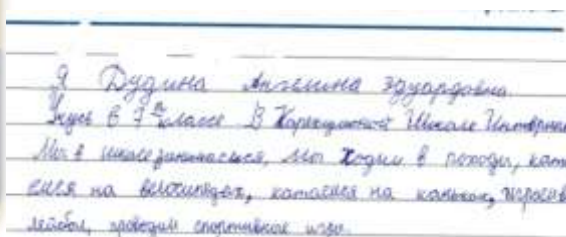 Я Дудина Ангелина Эдуардовна.
Учусь в 7 классе В Коррекционной Школе Интернат
Мы в школе занимаемся, мы ходим в походы, ката
емся на велосипедах, катаемся на коньках, играем в
лейбол, проводим спортивные игры.